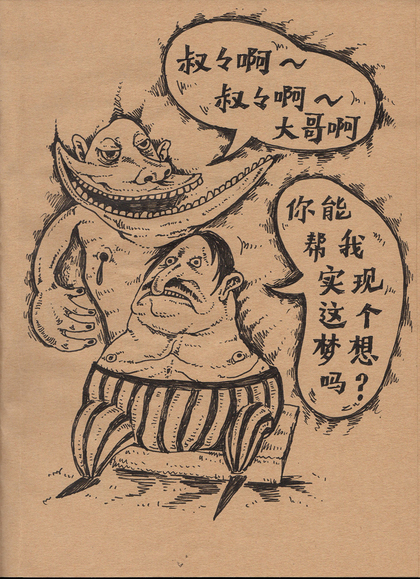 叔々啊～
叔々啊～
大哥啊
你能
帮我
实现
这个
梦想
吗?